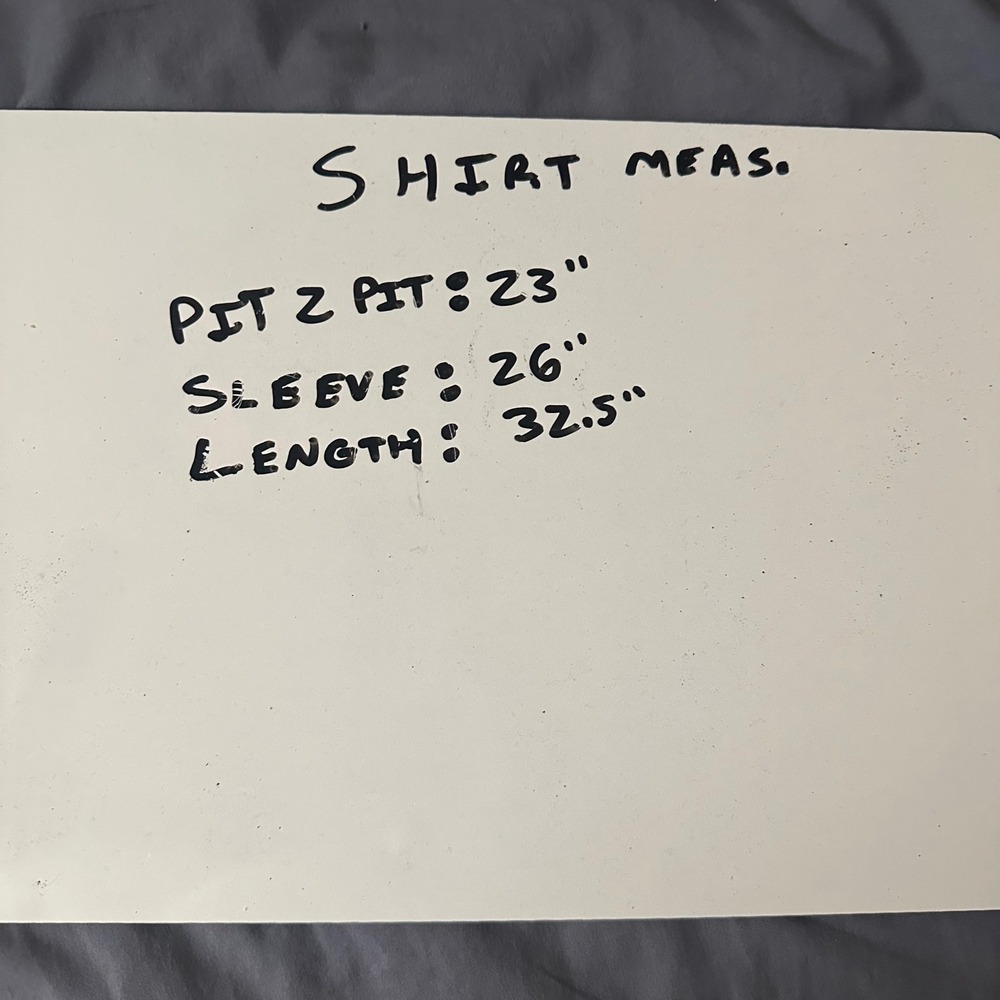 SHIRT MEAS.
PIT 2 PIT: 23"
SLEEVE: 26"
LENGTH: 32.5"